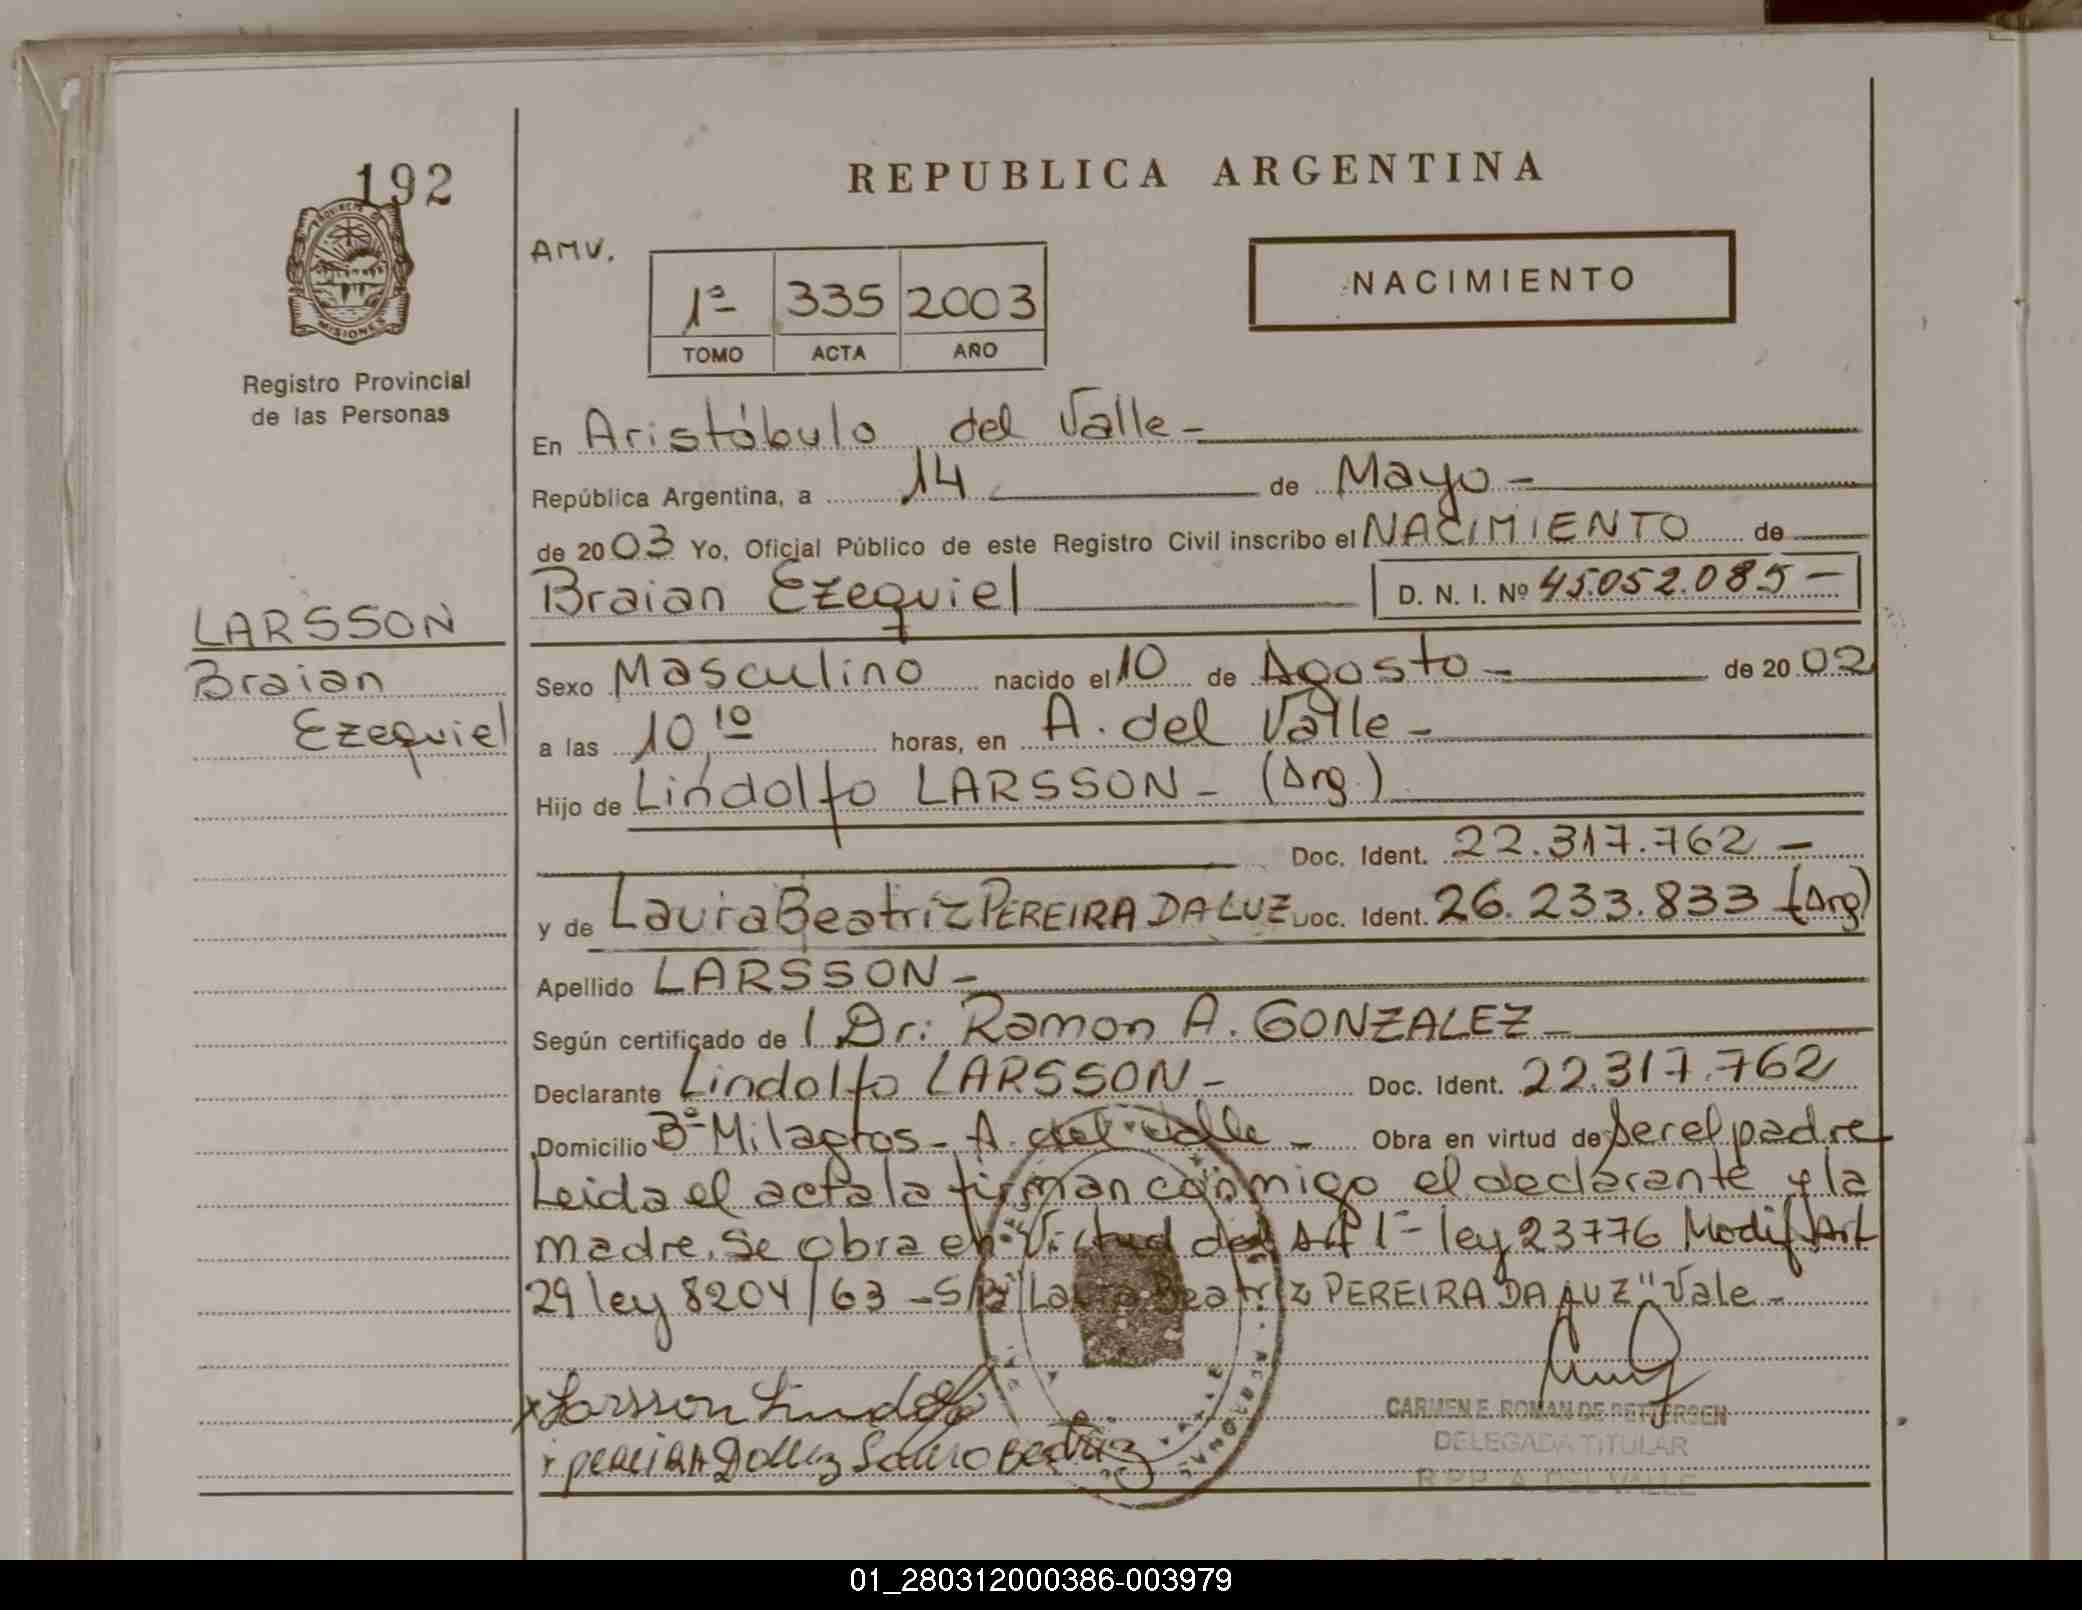 192
PROVINCIA DE
MISIONES
Registro Provincial
de las Personas
LARSSON
Braian
Ezequiel
REPUBLICA ARGENTINA
AMV.
1º 335 2003
TOMO ACTA AÑO
NACIMIENTO
En Aristóbulo del Valle -
República Argentina, a 14 de Mayo -
de 2003 Yo, Oficial Público de este Registro Civil inscribo el NACIMIENTO de
Braian Ezequiel D. N. I. Nº 45.052.085 -
Sexo Masculino nacido el 10 de Agosto - de 2002
a las 10,10 horas, en A. del Valle -
Hijo de Lindolfo LARSSON - (Arg.)
Doc. Ident. 22.317.762 -
y de Laura Beatriz PEREIRA DA LUZ Doc. Ident. 26.233.833 (Arg)
Apellido LARSSON -
Según certificado de l Dr: Ramon A. GONZALEZ -
Declarante Lindolfo LARSSON - Doc. Ident. 22.317.762
Domicilio Bº Milagros - A. del Valle - Obra en virtud de Ser el padre
Leida el acta la firman conmigo el declarante y la
madre. Se obra en virtud del Art 1º ley 23776 Modif Art
29 ley 8204/63 - S/R "Laura Beatriz PEREIRA DA LUZ" Vale -
Larsson Lindolfo
CARMEN E. ROMAN DE PETTERSEN
DELEGADA TITULAR
R.P.P. A. DEL VALLE
01_280312000386-003979